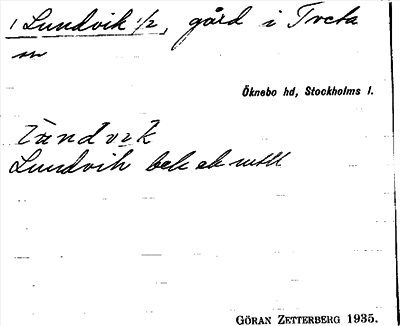 1 Lundvik 1/2, gård i Tveta
sn
Öknebo hd, Stockholms l.
Lundvik bek ek mtl
GÖRAN ZETTERBERG 1935.